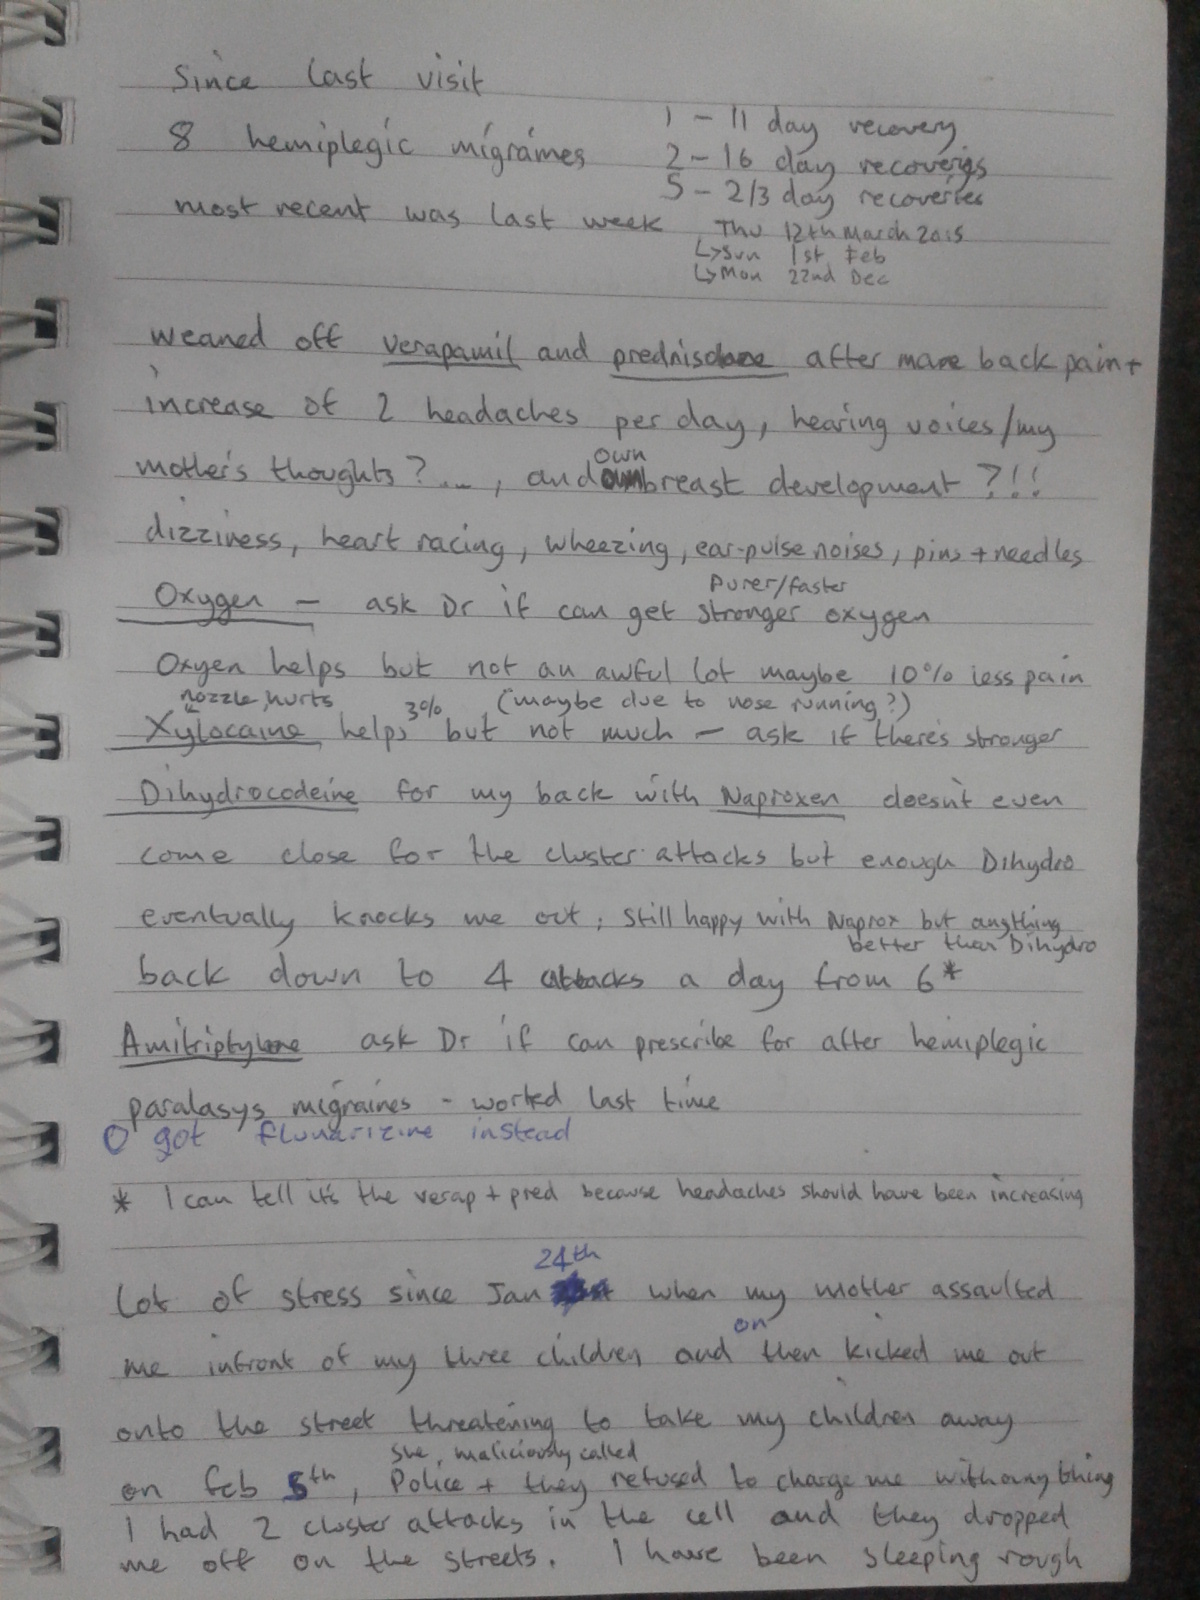 Since last visit
1 - 11 day recovery
8 hemiplegic migraines
2 - 16 day recoveries
5 - 2/3 day recoveries
most recent was last week Thu 12th March 2015
↳Sun 1st Feb
↳Mon 22nd Dec
weaned off verapamil and prednisolone after more back pain +
increase of 2 headaches per day, hearing voices/my
mother's thoughts?..., and own breast development ?!!!
dizziness, heart racing, wheezing, ear-pulse noises, pins + needles
purer/faster
Oxygen - ask Dr if can get stronger oxygen
Oxyen helps but not an awful lot maybe 10% less pain
nozzle hurts 3% (maybe due to nose running?)
Xylocaine helps but not much - ask if there's stronger
Dihydrocodeine for my back with Naproxen doesn't even
come close for the cluster attacks but enough Dihydro
eventually knocks me out, still happy with Naprox but anything
better than Dihydro
back down to 4 attacks a day from 6*
Amitriptylene ask Dr if can prescribe for after hemiplegic
paralasys migraines - worked last time
got flunarizine instead
* I can tell it's the verap + pred because headaches should have been increasing
24th
Lot of stress since Jan when my mother assaulted
on
me infront of my three children and then kicked me out
onto the street threatening to take my children away
she, maliciously called
on Feb 5th, Police + they refused to charge me with anything
I had 2 cluster attacks in the cell and they dropped
me off on the streets. I have been sleeping rough